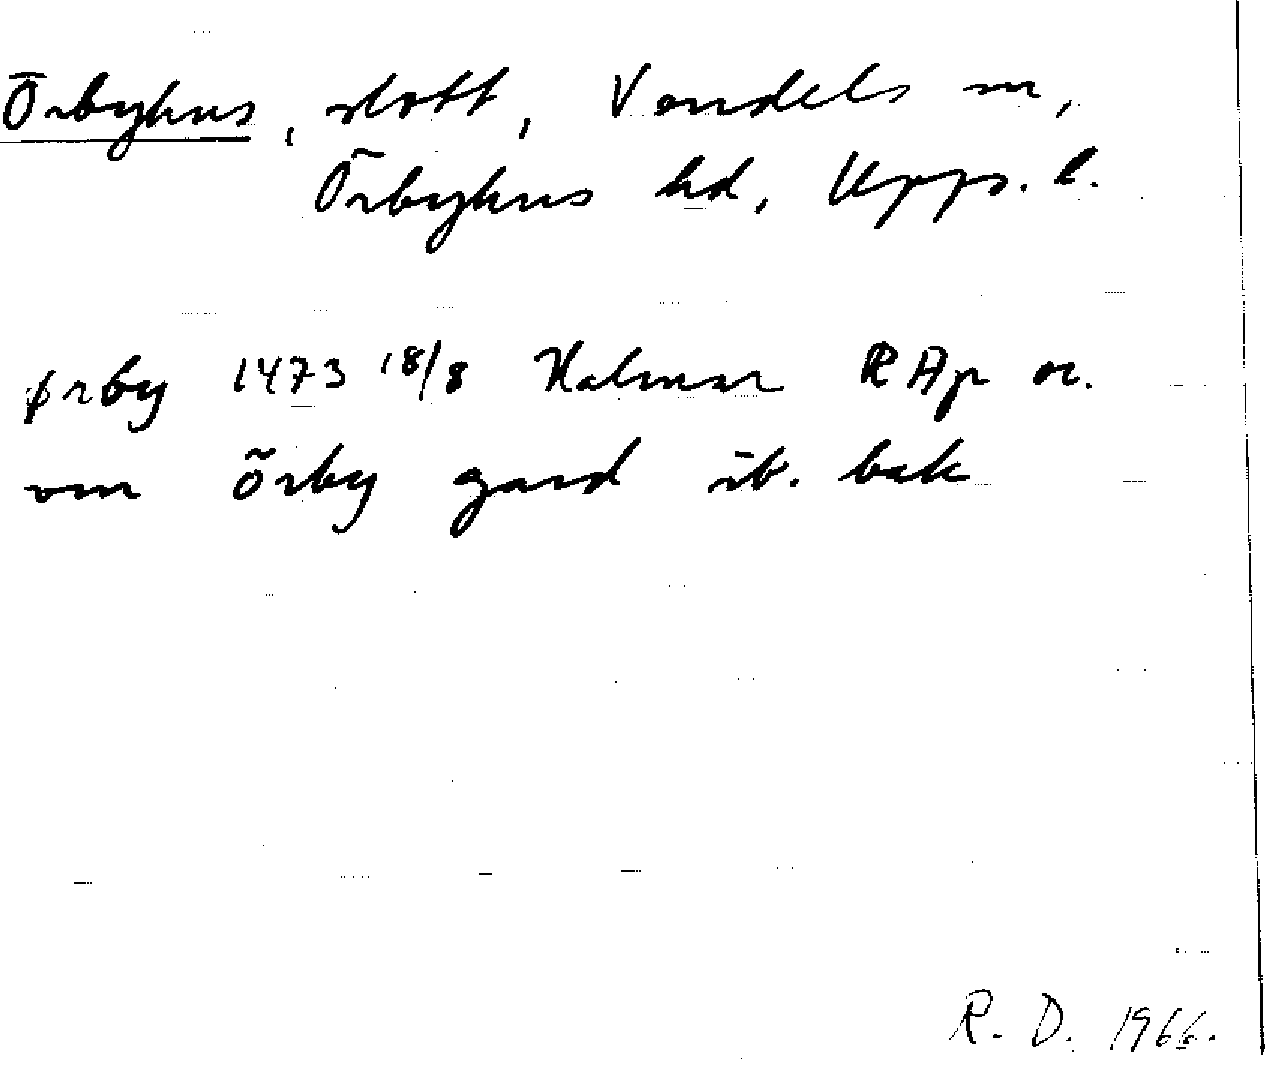 Örbyhus, slott, Vendels sn,
Örbyhus hd, Upps. l.
ørby 1473 18/8 Kalmar RAp or.
om örby gard ib. bak
R. D. 1966.